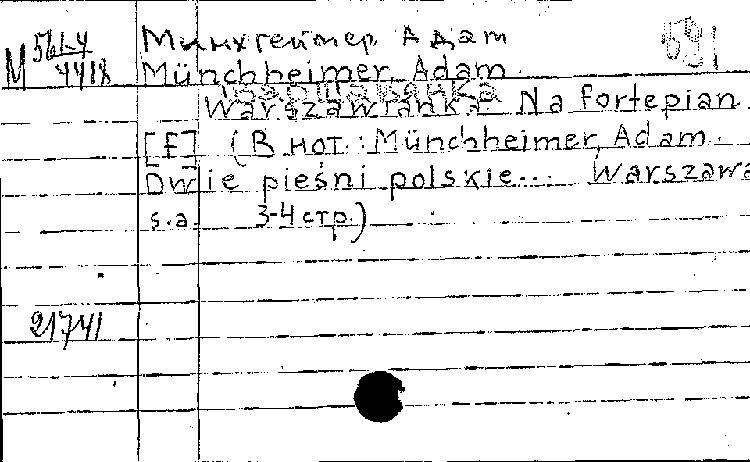 М 561-4
4418
Минхгеймер Адам
591
Münchheimer, Adam.
Warszawianka Na fortepian.
[F] (В нот.: Münchheimer, Adam.
Dwie pieśni polskie... Warszawa
s.a. 3-4 стр.)
21741